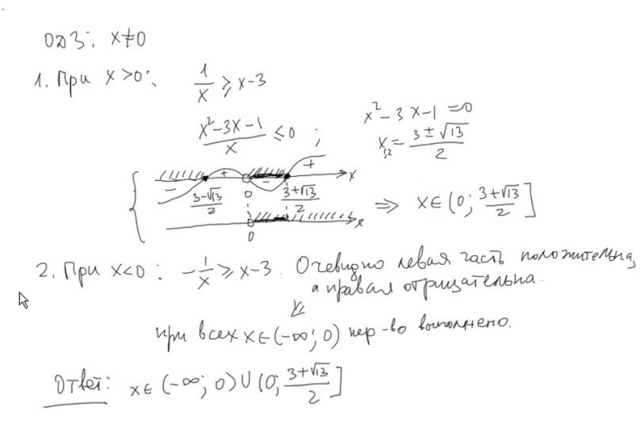 ОДЗ: x≠0
1. При x>0: 1/x ⩾ x-3
(x²-3x-1)/x ⩽ 0 ; x²-3x-1=0
x₁,₂ = (3±√13)/2
- + - + x
(3-√13)/2 0 (3+√13)/2 ⇒ x∈(0; (3+√13)/2]
0 x
2. При x<0: -1/x ⩾ x-3. Очевидно левая часть положительна,
а правая отрицательна.
⇙
при всех x∈(-∞; 0) нер-во выполнено.
Ответ: x∈(-∞; 0)∪(0; (3+√13)/2]